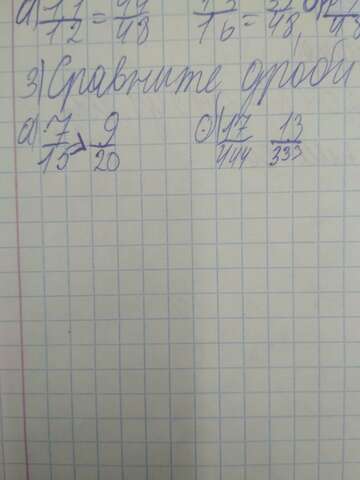 а) 11/12 = 44/48 /16 = /48,
3) Сравните дроби
а) 7/15 > 9/20 б) 17/444 13/333